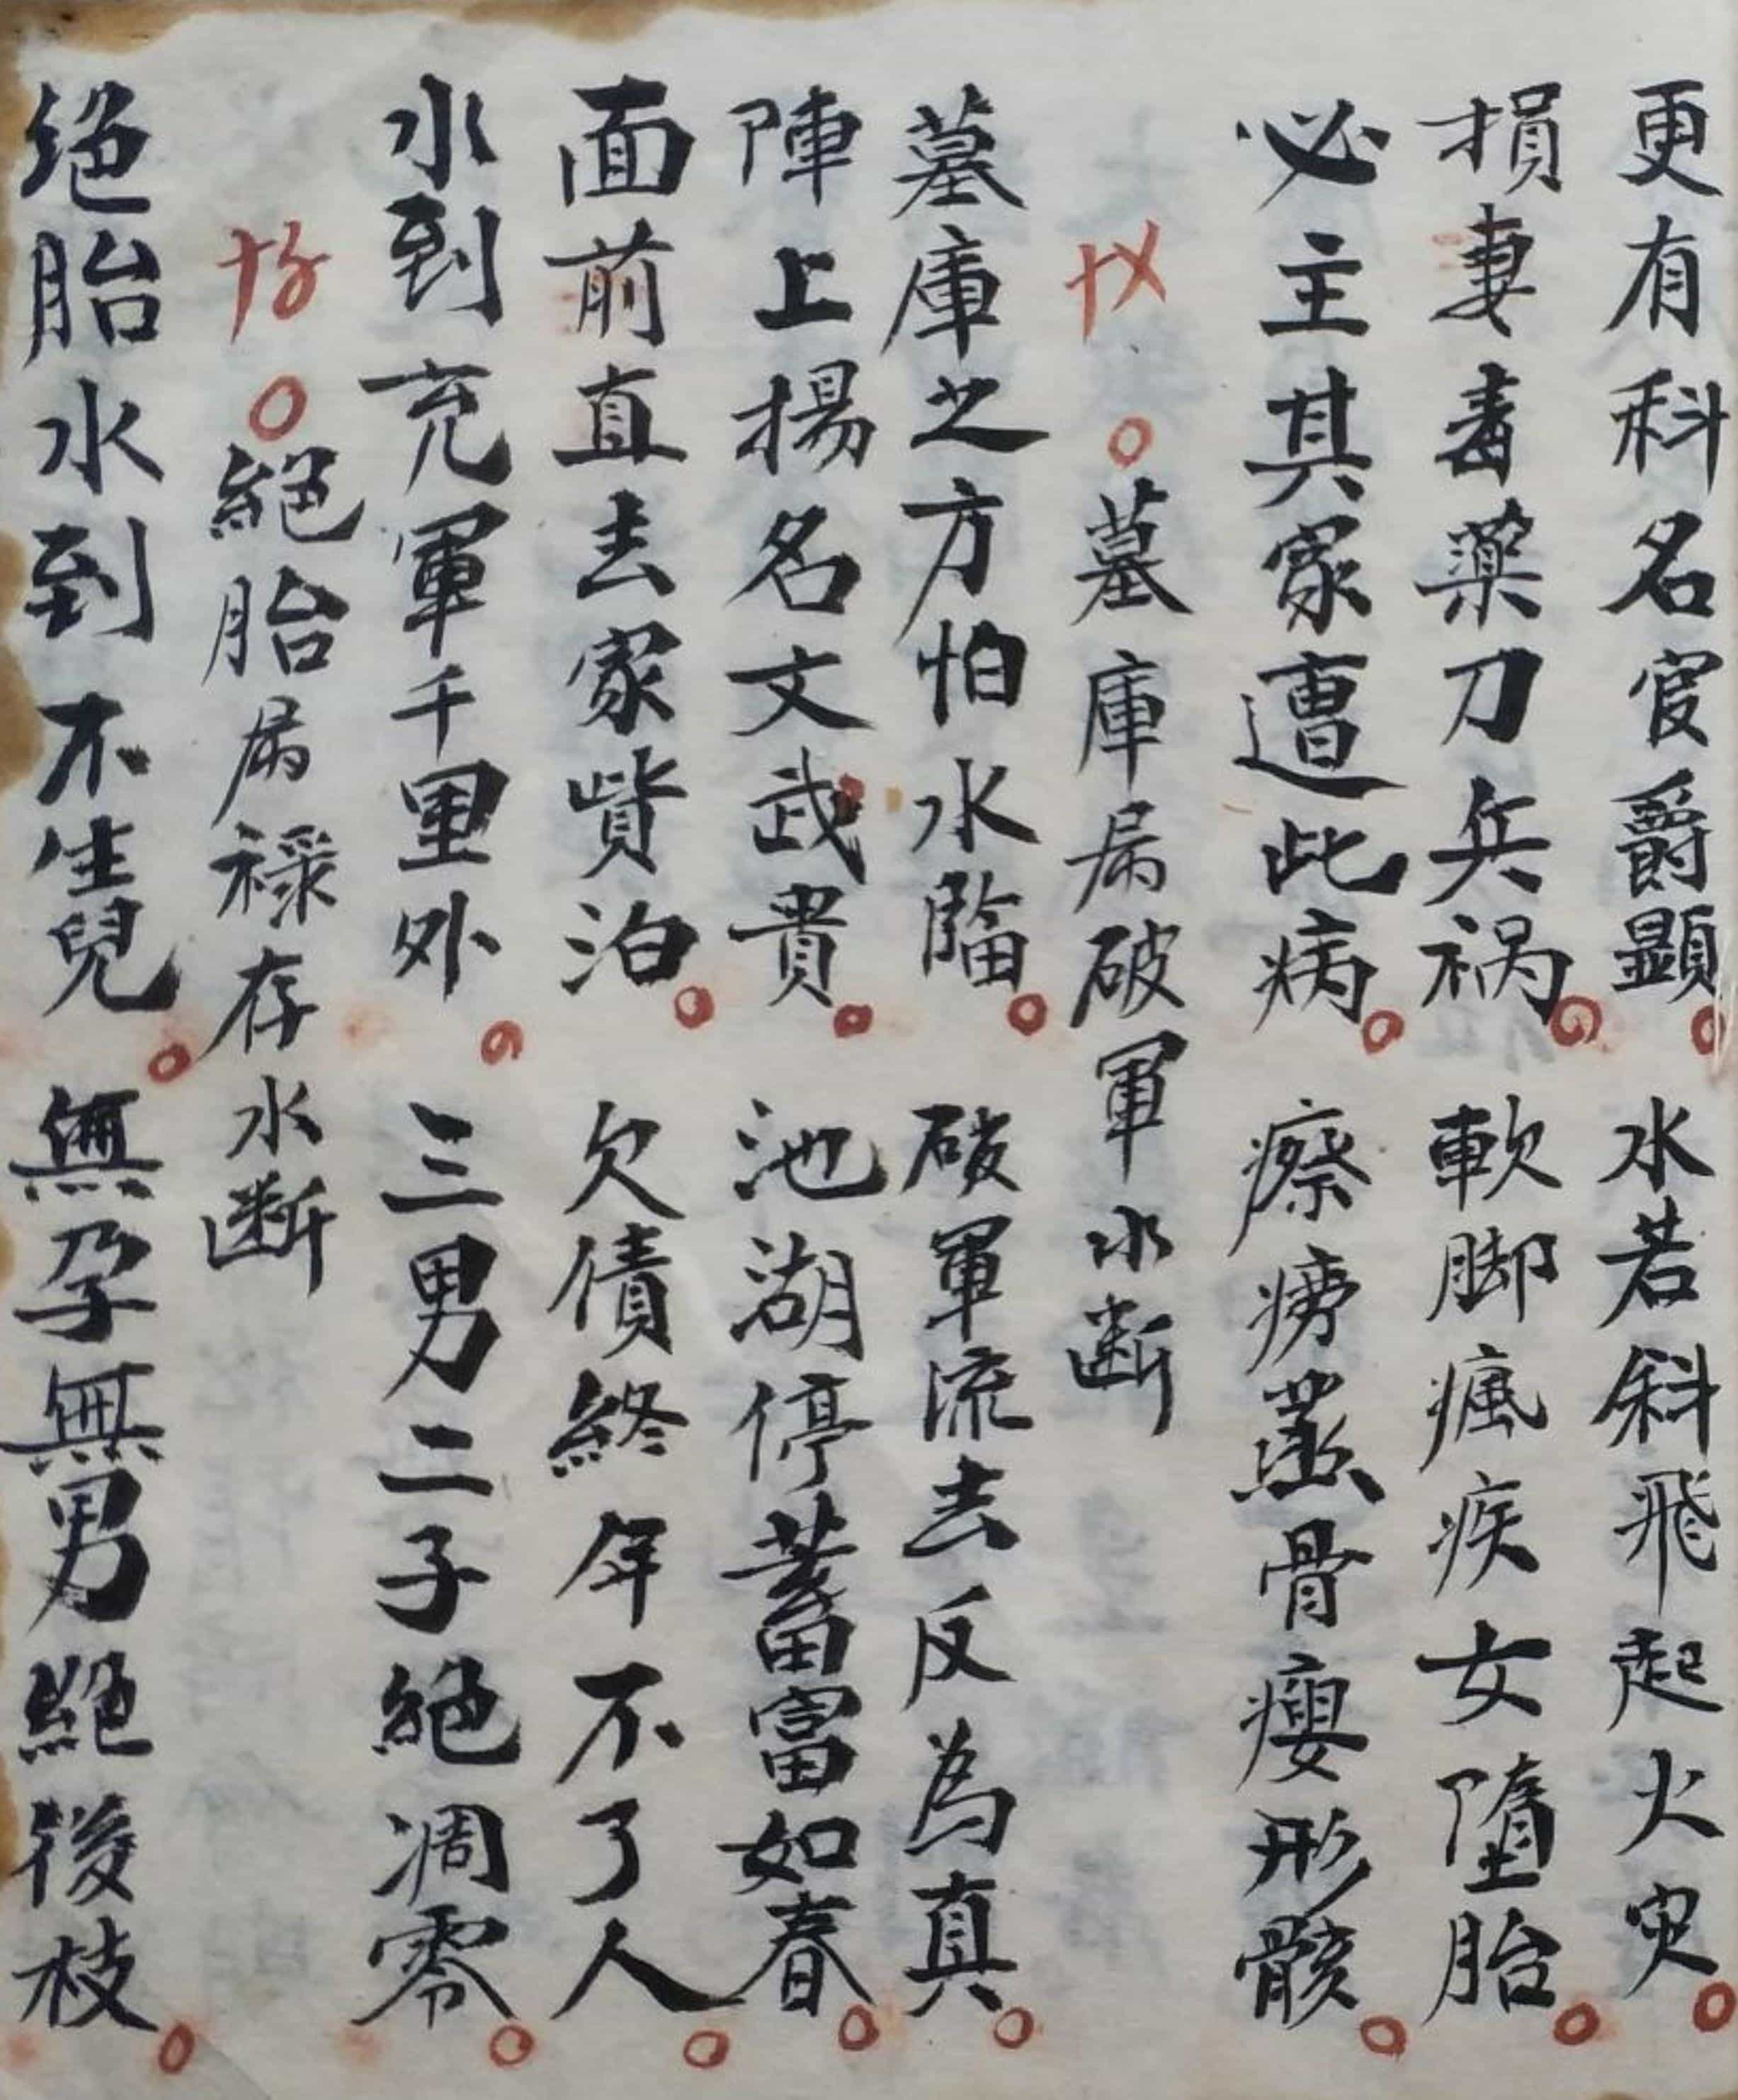 更有科名官爵顯水若斜飛起火灾
損妻毒藥刀兵禍軟脚瘋疾女墮胎
必主其家遭此病瘵癆蒸骨瘦形骸
墓庫屬破軍水斷
墓庫之方怕水臨破軍流去反為真
陣上揚名文武貴池湖停蓄富如春
面前直去家貲泊欠債終年不了人
水到充軍千里外三男二子絕凋零
絕胎屬祿存水斷
绝胎水到不生兒無孕無男絕後枝